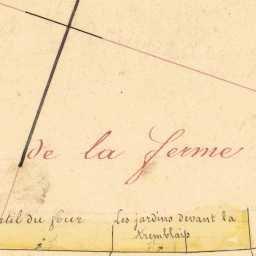 de la ferme
til du four
Les jardins devant la
Kremblais